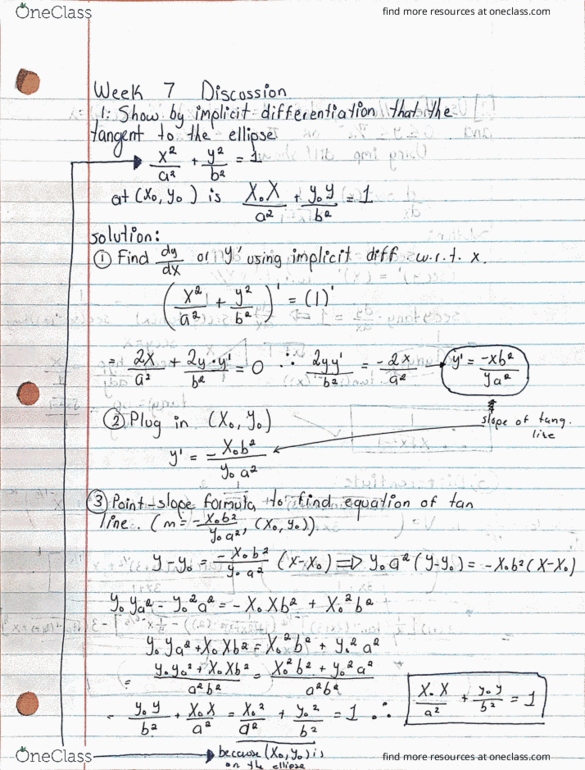 OneClass
find more resources at oneclass.com
Week 7 Discossion
1: Show by implicit differentiation that the
tangent to the ellipse
x²/a² + y²/b² = 1
at (x₀, y₀) is x₀x/a² + y₀y/b² = 1
solution:
① Find dy/dx or y' using implicit diff w.r.t. x.
(x²/a² + y²/b²)' = (1)'
= 2x/a² + 2y·y'/b² = 0 ∴ 2yy'/b² = -2x/a² → y' = -xb²/ya²
slope of tang.
line
② Plug in (x₀, y₀)
y' = -x₀b²/y₀a²
③ Point-slope formula to find equation of tan
line. (m = -x₀b²/y₀a², (x₀, y₀))
y-y₀ = -x₀b²/y₀a² (x-x₀) ⟹ y₀a²(y-y₀) = -x₀b²(x-x₀)
y₀ya² - y₀²a² = -x₀xb² + x₀²b²
y₀ya² + x₀xb² = x₀²b² + y₀²a²
= y₀ya² + x₀xb²/a²b² = x₀²b² + y₀²a²/a²b²
= y₀y/b² + x₀x/a² = x₀²/a² + y₀²/b² = 1 ∴ x₀x/a² + y₀y/b² = 1
because (x₀, y₀) is
on the ellipse
OneClass
find more resources at oneclass.com